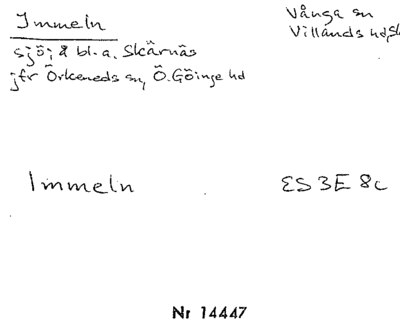 Immeln
sjö; & bl.a. Skärnäs
jfr Örkeneds sn, Ö. Göinge hd
Vånga sn
Villands hd, Sk
Immeln
ES 3E 8c
Nr 14447